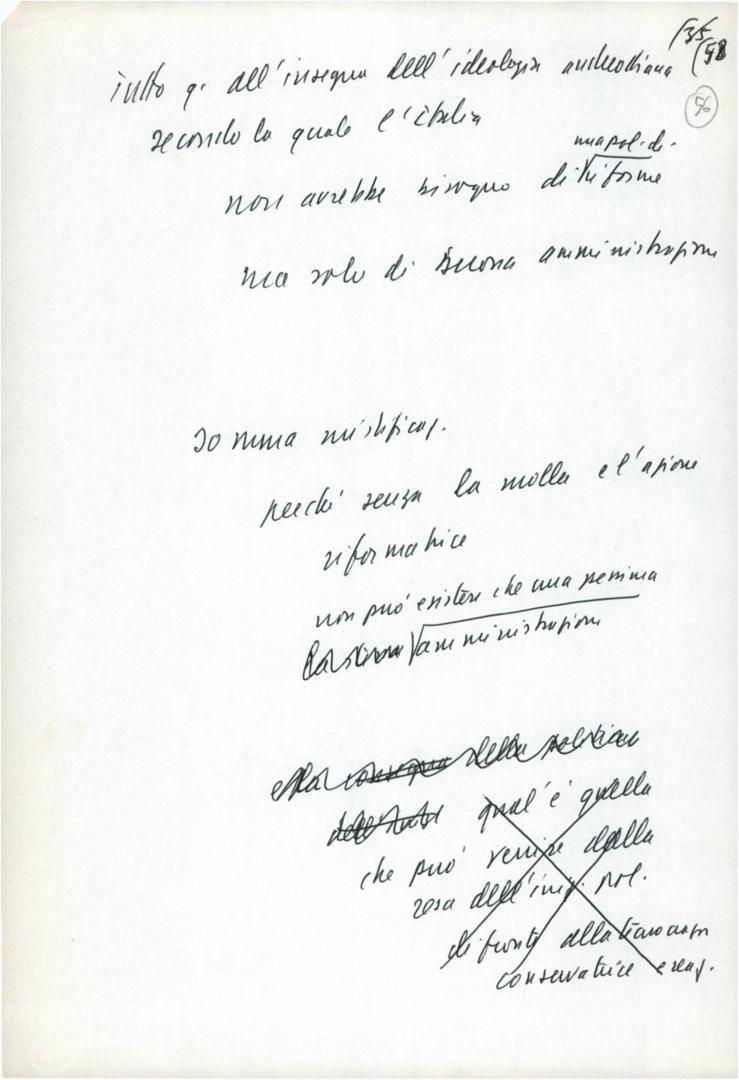 135
(58
56
tutto q. all'insegna dell'ideologia andreottiana
secondo la quale l'italia
una pol. di
non avrebbe bisogno di riforme
ma solo di buona amministrazione
somma mistificaz.
perché senza la molla e l'azione
riformatrice
non può esistere che una pessima
amministrazione
della politica
qual'è quella
che può venire dalla
resa dell'iniz. pol.
di fronte alla
conservatrice e reaz.